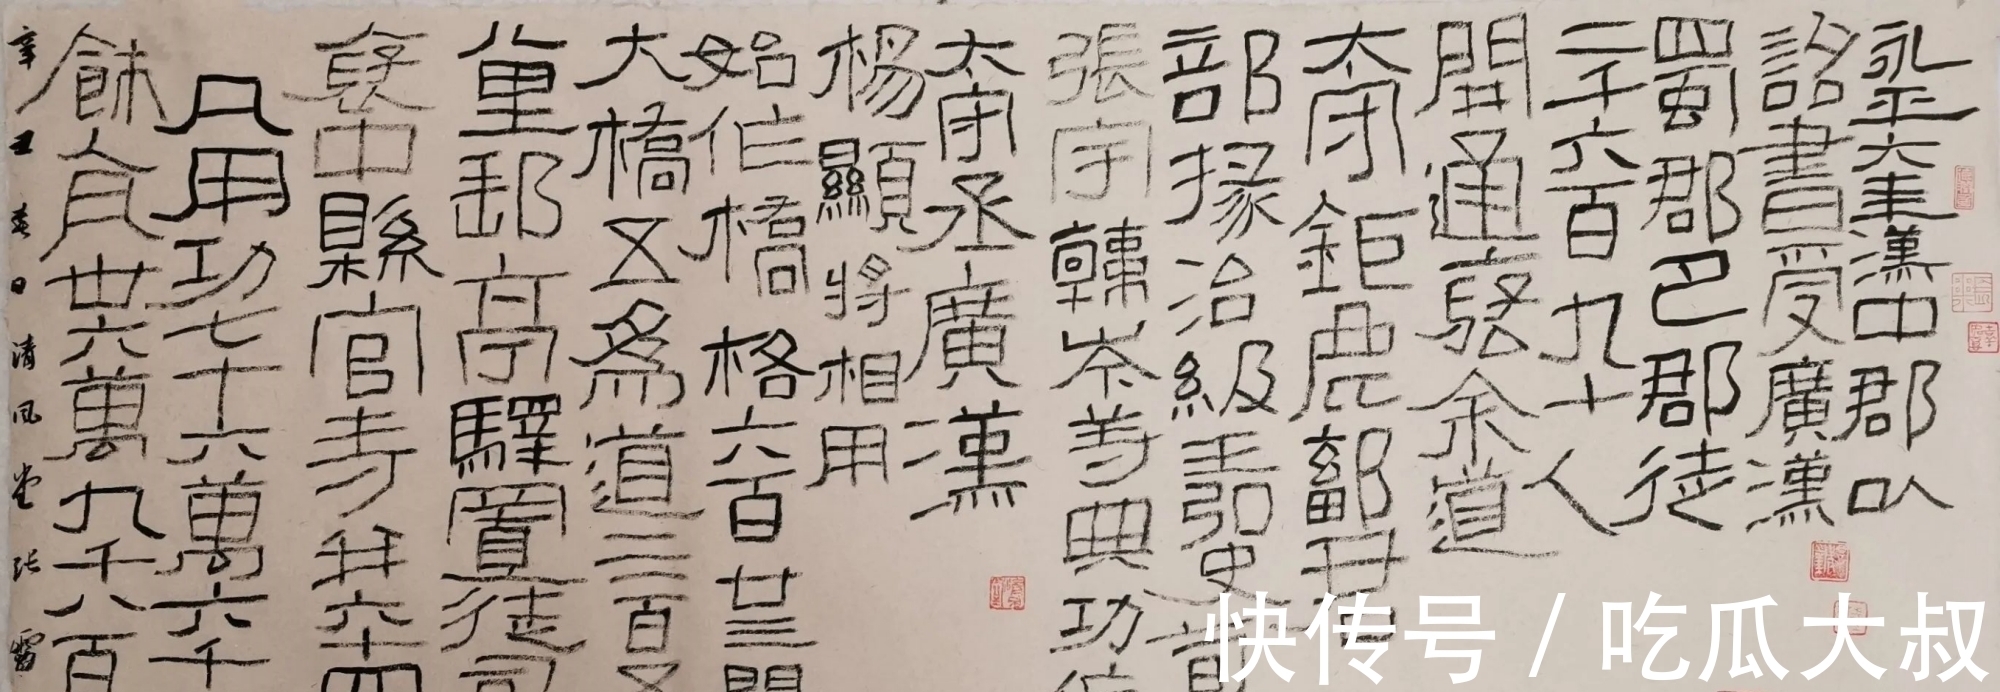 永平六年漢中郡以
詔書受廣漢
蜀郡巴郡徒
二千六百九十人
開通褒余道
太守鉅鹿鄐
部掾治級王弘史荀
張宇韓岑等典功作
太守丞廣漢
楊顯將相用
始作橋格六百廿三間
大橋五為道二百五
八里郵亭驛置徒司
褒中縣官寺并六十四
凡用功七十六萬六千
餘人卅六萬九千八百
辛丑春日清風堂張雷
快传号/吃瓜大叔